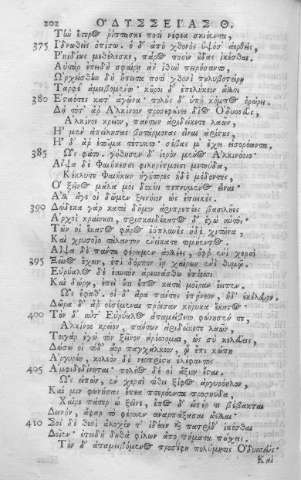 202 ὈΔΥΣΣΕΊΑΣ Θ.
Τὼ ἕτερος ῥίπτασκε ποτὶ νέφεα σκιόεντα,
375 Ἰδνωθεὶς ὀπίσω· ὁ δ' ἀπὸ χθονὸς ὑψόσ' ἀερθεὶς,
Ῥηϊδίως μεθέλεσκε, πάρος ποσὶν οὖδας ἱκέσθαι.
Αὐτὰρ ἐπειδὴ σφαίρῃ
Ὠρχείσθην δὴ ἔπειτα ποτὶ χθονὶ πουλυβοτείρῃ
Ταρφέ' ἀμειβομένω· κοῦροι δ' ἐπελήκεον ἄλλοι
380 Ἑσταότες κατ' ἀγῶνα· πολὺς δ' ὑπὸ κόμπος ὀρώρει.
Δὴ τότ' ἄρ' Ἀλκίνοον προσεφώνεε δῖος Ὀδυσσεὺς,
Ἀλκίνοε κρεῖον, πάντων ἀριδείκετε λαῶν,
Ἠ μὲν ἀπείλησας βητάρμονας εἶναι ἀρίστους,
Ἠ δ' ἄρ' ἑτοῖμα τέτυκτο· σέβας μ' ἔχει εἰσορόωντα.
385 Ὣς φάτο· γήθησεν δ' ἱερὸν μένος Ἀλκινόοιο·
Αἶψα δὲ Φαιήκεσσι φιληρέτμοισι μετηύδα,
Κέκλυτε Φαιήκων ἡγήτορες ἠδὲ μέδοντες,
Ὁ ξεῖνος μάλα μοι δοκέει πεπνυμένος εἶναι·
Ἀλλ' ἄγε οἱ δῶμεν ξεινήιον ὡς ἐπιεικές.
390 Δώδεκα γὰρ κατὰ δῆμον ἀριπρεπέες βασιλῆες
Ἀρχοὶ κραίνουσι, τρισκαιδέκατος δ' ἐγὼ αὐτός·
Τῶν οἱ ἕκαστος φᾶρος ἐϋπλυνὲς ἠδὲ χιτῶνα,
Καὶ χρυσοῖο τάλαντον ἐνείκατε τιμήεντος.
Αἶψα δὲ πάντα φέρωμεν ἀολλέες, ὄφρ' ἐνὶ χερσὶ
395 ξεῖνος ἔχων, ἐπὶ δόρπον ἴῃ χαίρων ἐνὶ θυμῷ.
Εὐρύαλος δὲ ἑ αὐτὸν ἀρεσσάσθω ἐπέεσσι
Καὶ δώρῳ, ἐπεὶ οὔτι ἔπος κατὰ μοῖραν ἔειπεν.
Ὣς ἔφαθ'· οἱ δ' ἄρα πάντες ἐπῄνεον, ἠδ' ἐκέλευον·
Δῶρα δ' ἄρ' οἰσέμεναι πρόεσαν κήρυκα ἕκαστος.
400 Τὸν δ' αὖτ' Εὐρύαλος ἀπαμείβετο φώνησέν τε,
Ἀλκίνοε κρεῖον, πάντων ἀριδείκετε λαῶν,
Τοιγὰρ ἐγὼ τὸν ξεῖνον ἀρέσσομαι, ὡς σὺ κελεύεις,
Δώσω οἱ τόδ' ἄορ παγχάλκεον, ᾧ ἔπι κώπη
Ἀργυρέη, κολεὸν δὲ νεοπρίστου ἐλέφαντος
405 Ἀμφιδεδίνηται· πολέος δέ οἱ ἄξιον ἔσται.
Ὣς εἰπὼν, ἐν χερσὶ τίθει ξίφος ἀργυρόηλον,
Καί μιν φωνήσας ἔπεα πτερόεντα προσηύδα,
Χαῖρε πάτερ ὦ ξεῖνε, ἔπος δ' εἴπερ τι βέβακται
Δεινὸν, ἄφαρ τὸ φέροιεν ἀναρπάξασαι ἄελλαι·
410 Σοὶ δὲ θεοὶ ἄλοχόν τ' ἰδέειν καὶ πατρίδ' ἱκέσθαι
Δοῖεν· ἐπειδὴ δηθὰ φίλων ἄπο πήματα πάσχεις.
Τὸν δ' ἀπαμειβόμενος προσέφη πολύμητις Ὀδυσσεύς·
Καὶ